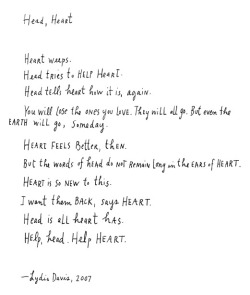 Head, Heart
Heart weeps.
Head tries to HELP HEART.
Head tells heart how it is, again.
You will lose the ones you love. They will all go. But even the
EARTH will go, Someday.
HEART FEELS Better, then.
But the words of head do not Remain long in the EARS of HEART.
HEART is so NEW to this.
I want them BACK, says HEART.
Head is all heart has.
HELP, head. Help HEART.
—Lydia Davis, 2007